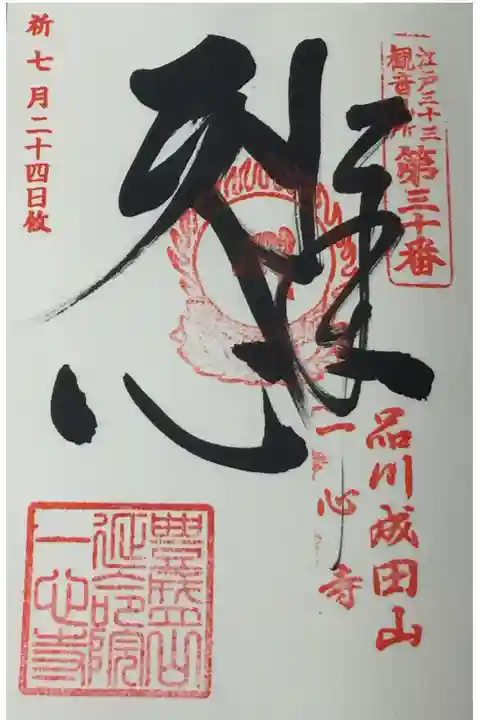 江戸三十三
観音札所
第三十番
品川成田山
一心寺
祈 七月二十四日
豊盛山
延命院
一心寺